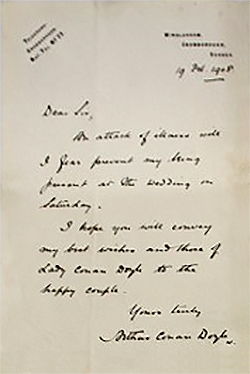 WINDLESHAM,
CROWBOROUGH,
SUSSEX.
Dear Sir,
An attack of illness will
I fear prevent my being
present at the wedding on
Saturday.
I hope you will convey
my best wishes and those of
Lady Conan Doyle to the
happy couple.
Yours truly
Arthur Conan Doyle